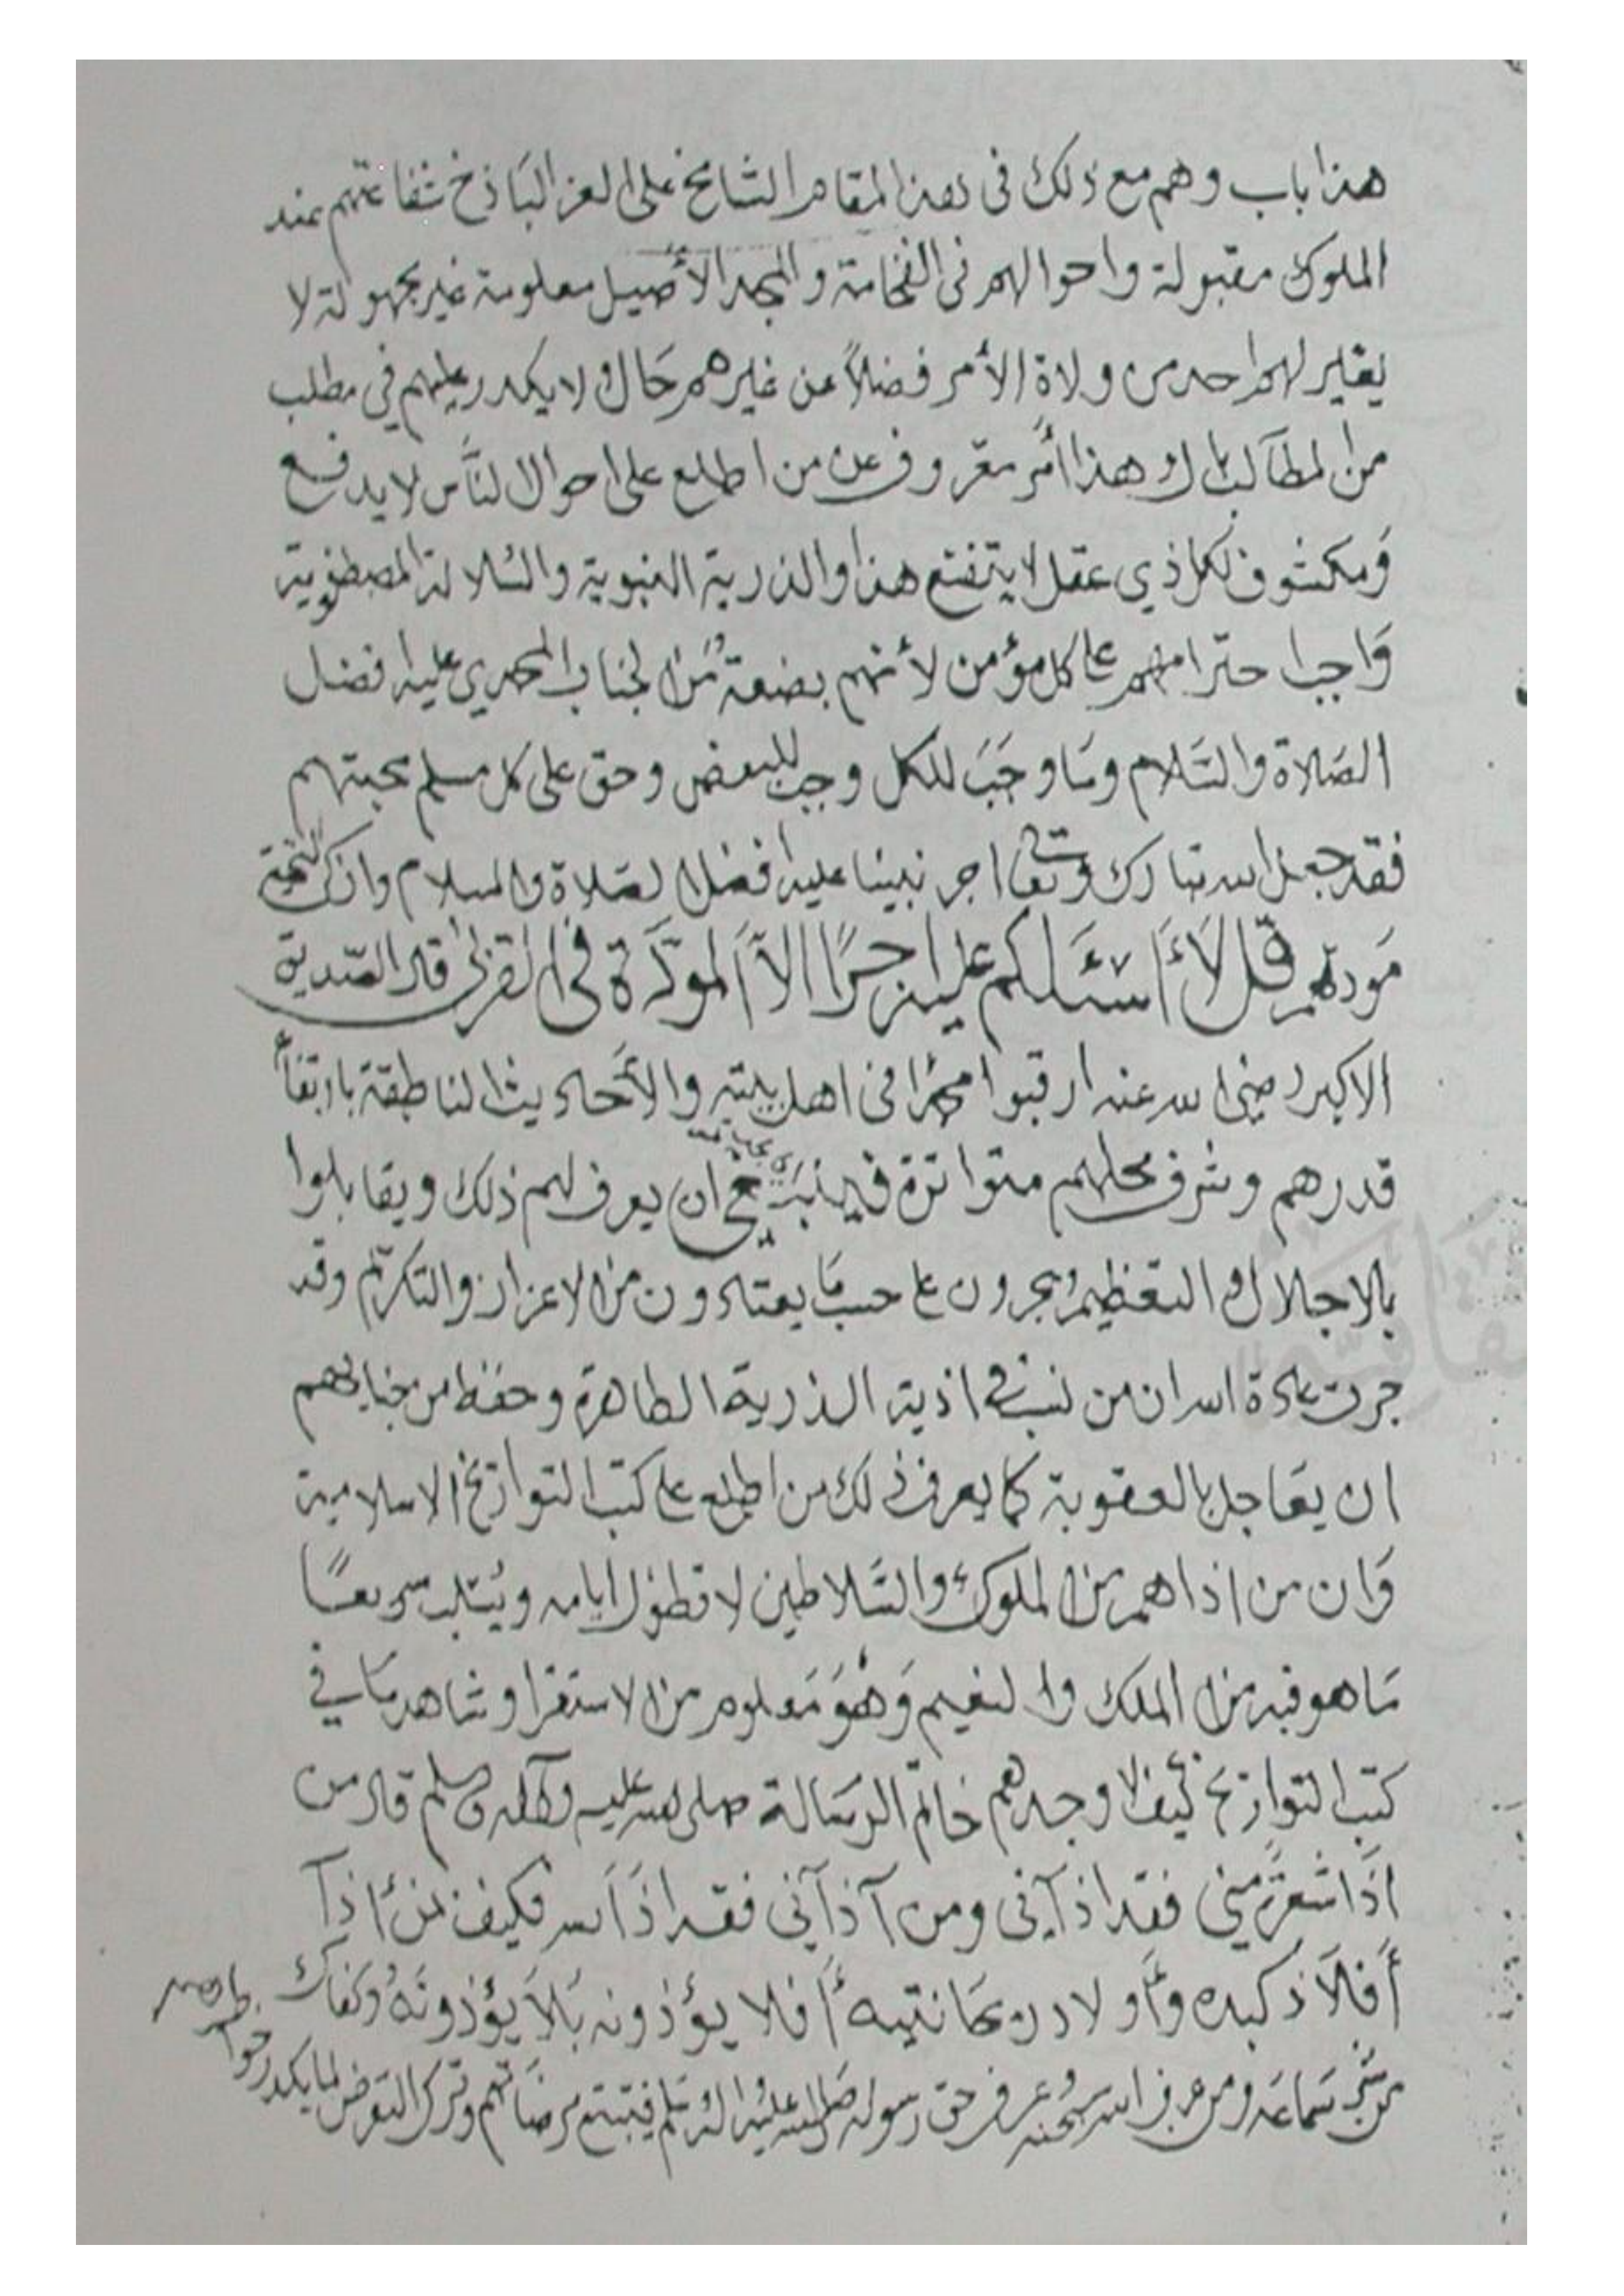 هذا باب وهم مع ذلك فى هذا المقام الشامخ على العز الباذخ شفاعتهم عند
الملوك مقبولة واحوالهم فى الفخامة والمجد الأصيل معلومة غير مجهولة لا
يغير لهم احد من ولاة الأمر فضلاً عن غيرهم حال ولا يكدر عليهم في مطلب
من المطالب بال وهذا أمر معروف عن من اطلع على احوال الناس لا يدفع
ومكشوف لكل ذي عقل لا يتقنع هذا والذرية النبوية والسلالة المصطفوية
واجب احترامهم على كل مؤمن لأنهم بضعة من الجناب المحمدي عليه افضل
الصلاة والسلام وما وجب للكل وجب للبعض وحق على كل مسلم محبتهم
فقد جعل الله تبارك وتعالى اجر نبينا عليه افضل الصلاة والسلام وازكى التحية
مودتهم قل لأ أسئلكم عليه اجرًا الاّ المودّة فى القربى قال الصديق
الاكبر رضي الله عنه ارقبوا محمدا فى اهل بيته والأحاديث الناطقة بارتفاع
قدرهم وشرف محلهم متواترة ان يعرف لهم ذلك ويقابلوا
بالاجلال والتعظيم ويجرون على حسب ما يعتادون من الاعزاز والتكريم وقد
جرت عادة الله ان من تسبب فى اذية الذرية الطاهرة وحفظ من جنابهم
ان يعاجل بالعقوبة كما يعرف ذلك من اطلع على كتب التواريخ الاسلامية
وان من اذاهم من الملوك والسلاطين لا تطول ايامه ويسلب سريعاً
ما هو فيه من الملك والنعيم وهو معلوم من الاستقرا وشاهد ما في
كتب التواريخ كيف لا وجدهم خاتم الرسالة صلى الله عليه وآله وسلم قال من
اذا شعرة مني فقد اذآنى ومن آذآني فقد اذا الله فكيف بمن اذآ
أفلاذ كبده وأولاد ريحانتيه أفلا يؤذونه بلا يؤذونه وكفاك
من شر سماعه ومن عرف الله سبحانه عرف حق رسوله صلى الله عليه واله وسلم فيتبع مرضاتهم وترك التعرض لما يكدر